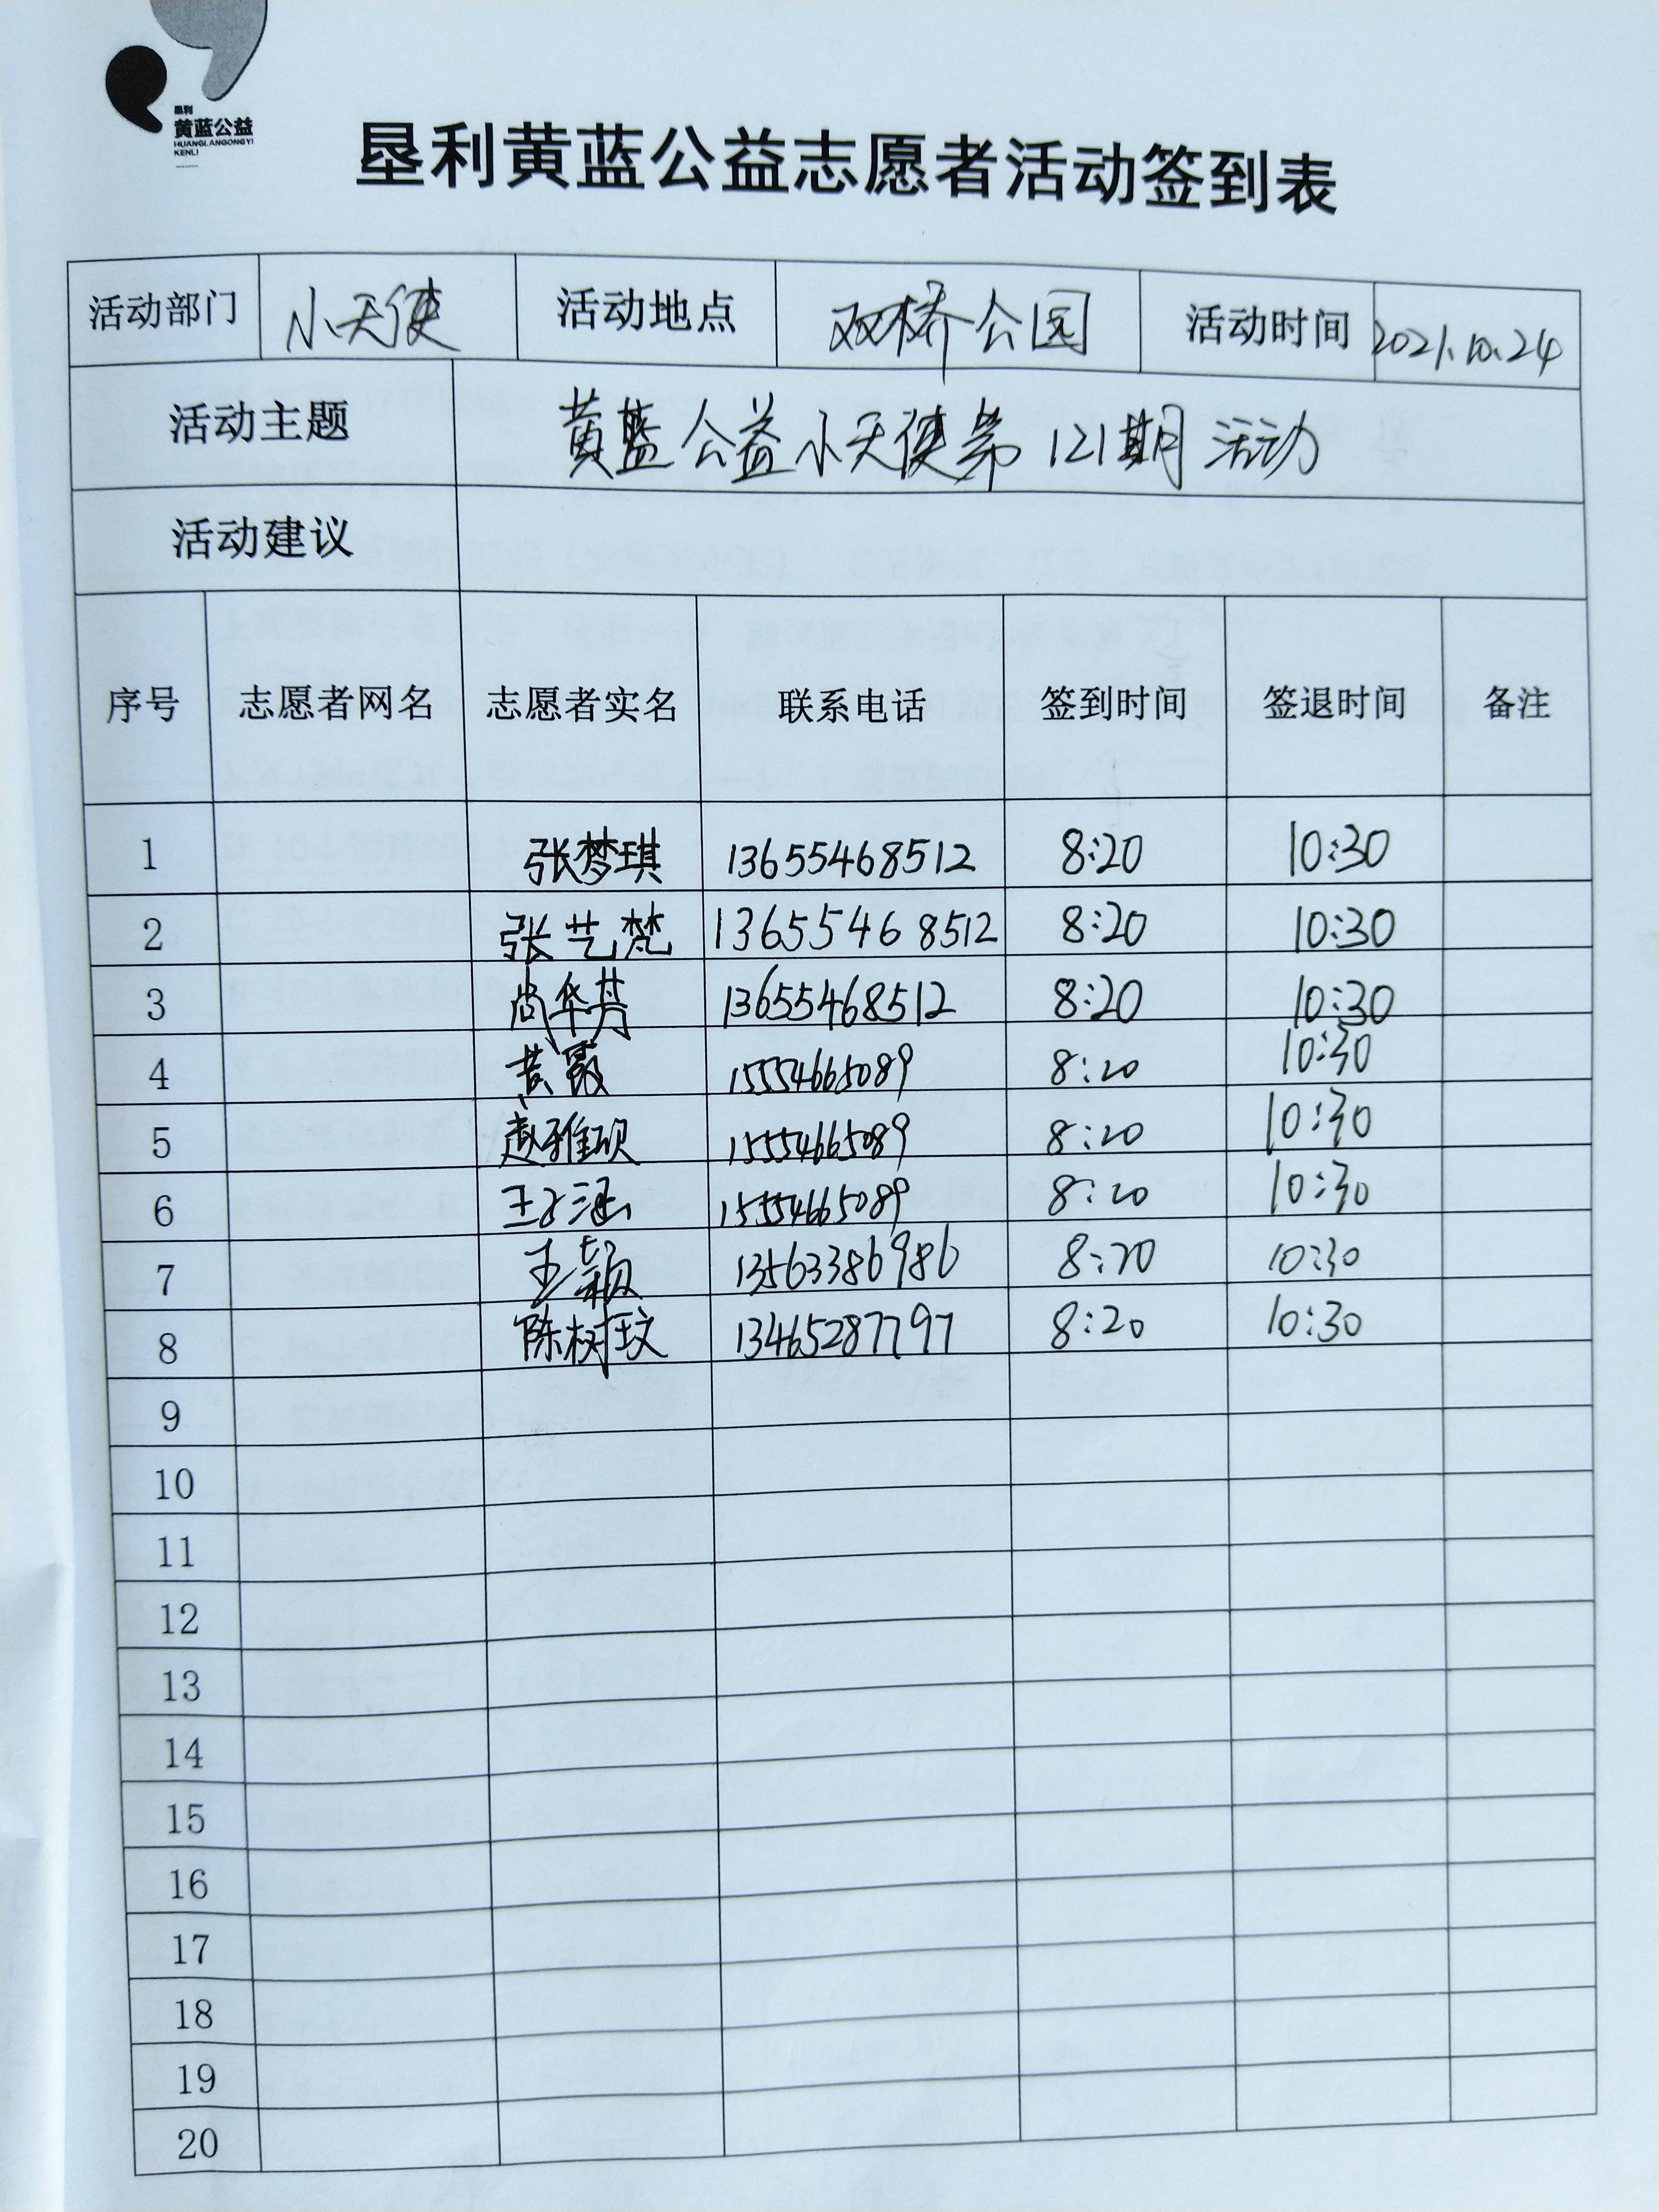 垦利
黄蓝公益
HUANGLANGONGYI
KENLI
垦利黄蓝公益志愿者活动签到表
活动部门 小天使 活动地点 双桥公园 活动时间 2021.10.24
活动主题 黄蓝公益小天使第121期活动
活动建议
序号 志愿者网名 志愿者实名 联系电话 签到时间 签退时间 备注
1 张梦琪 13655468512 8:20 10:30
2 张艺梵 13655468512 8:20 10:30
3 尚华芳 13655468512 8:20 10:30
4 黄霞 15554665089 8:20 10:30
5 赵雅硕 15554665089 8:20 10:30
6 王子涵 15554665089 8:20 10:30
7 王颖 13563386986 8:20 10:30
8 陈树玟 13465287797 8:20 10:30
9
10
11
12
13
14
15
16
17
18
19
20